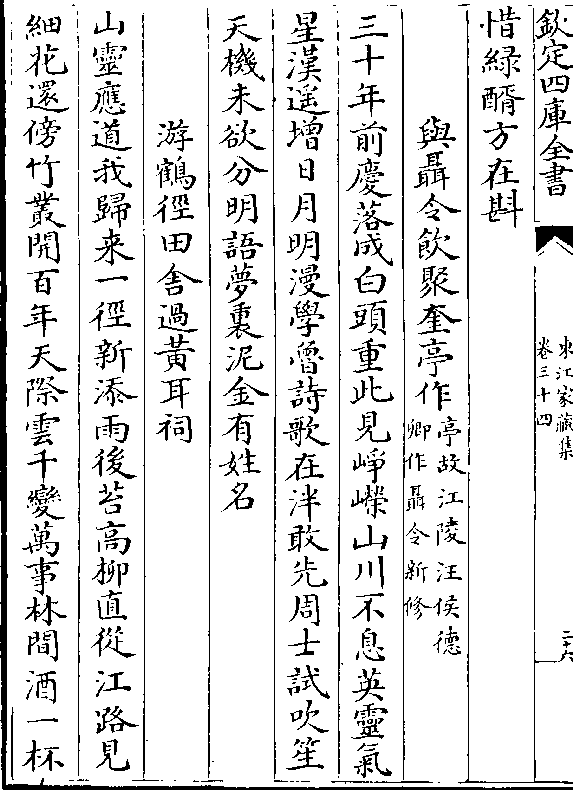 欽定四庫全書
東江家藏集
卷三十四
二十六
惜緑醑方在斟
與聶令飲聚奎亭作亭故江陵汪侯德
卿作聶令新修
三十年前慶落成白頭重此見崢嶸山川不息英靈氣
星漢遥增日月明漫學魯詩歌在泮敢先周士試吹笙
天機未欲分明語夢裏泥金有姓名
游鶴徑田舎過黃耳祠
山靈應道我歸来一徑新添雨後苔高柳直從江路見
細花還傍竹叢開百年天際雲千變萬事林間酒一杯